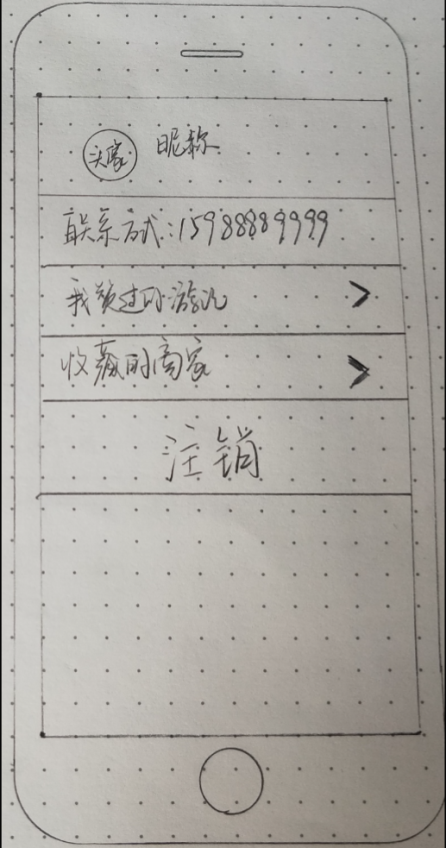 头像 昵称
联系方式:15988889999
我过的游记
收藏的商家
注销